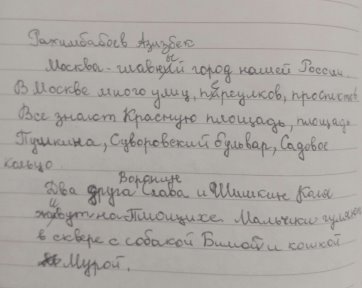 Рахимбабоев Азизбек
Москва - главный город нашей России.
В Москве много улиц, переулков, проспектов
Все знают Красную площадь, площадь
Пушкина, Суворовский бульвар, Садовое
кольцо.
Воронин
Два друга Слава и Шишкин Коля
живут на Плющихе. Мальчики гуляют
в сквере с собакой Бимом и кошкой
Мурой.